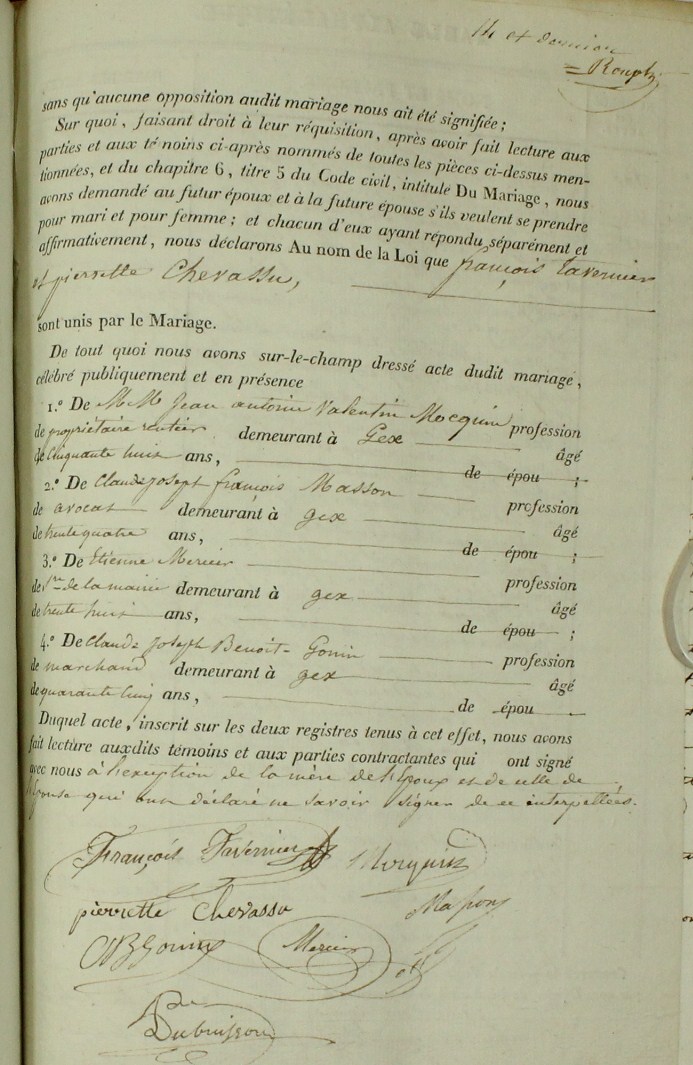 14 et dernier
Roupt
sans qu'aucune opposition audit mariage nous ait été signifiée ;
Sur quoi, faisant droit à leur réquisition, après avoir fait lecture aux
parties et aux té noins ci-après nommés de toutes les pièces ci-dessus men-
tionnées, et du chapitre 6, titre 5 du Code civil, intitule Du Mariage, nous
avons demandé au futur époux et à la future épouse s'ils veulent se prendre
pour mari et pour femme ; et chacun d'eux ayant répondu séparément et
affirmativement, nous déclarons Au nom de la Loi que françois tavernier
et pierrette Chevassu,
sont unis par le Mariage.
De tout quoi nous avons sur-le-champ dressé acte dudit mariage,
célébré publiquement et en présence
1.º De M M Jean antoine Valentin Mocquin profession
de propriétaire rentier demeurant à Gex âgé
de Cinquante huit ans, de épou ;
2.º De Claude joseph françois Masson profession
de avocat demeurant à gex âgé
de trente quatre ans, de épou ;
3.º De Etienne Mercier profession
de Sre de la mairie demeurant à gex âgé
de trente huit ans, de épou ;
4.º De Claude Joseph Benoit Gonin profession
de marchand demeurant à gex âgé
de quarante cinq ans, de épou
Duquel acte, inscrit sur les deux registres tenus à cet effet, nous avons
fait lecture auxdits témoins et aux parties contractantes qui ont signé
avec nous à l'exception de la mère de l'époux et de celle de
l'épouse qui ont déclaré ne savoir signer de ce interpellées.
François Tavernier Mocquin
pierrette Chevassu Masson
CJBGonin Mercier
Dubuisson